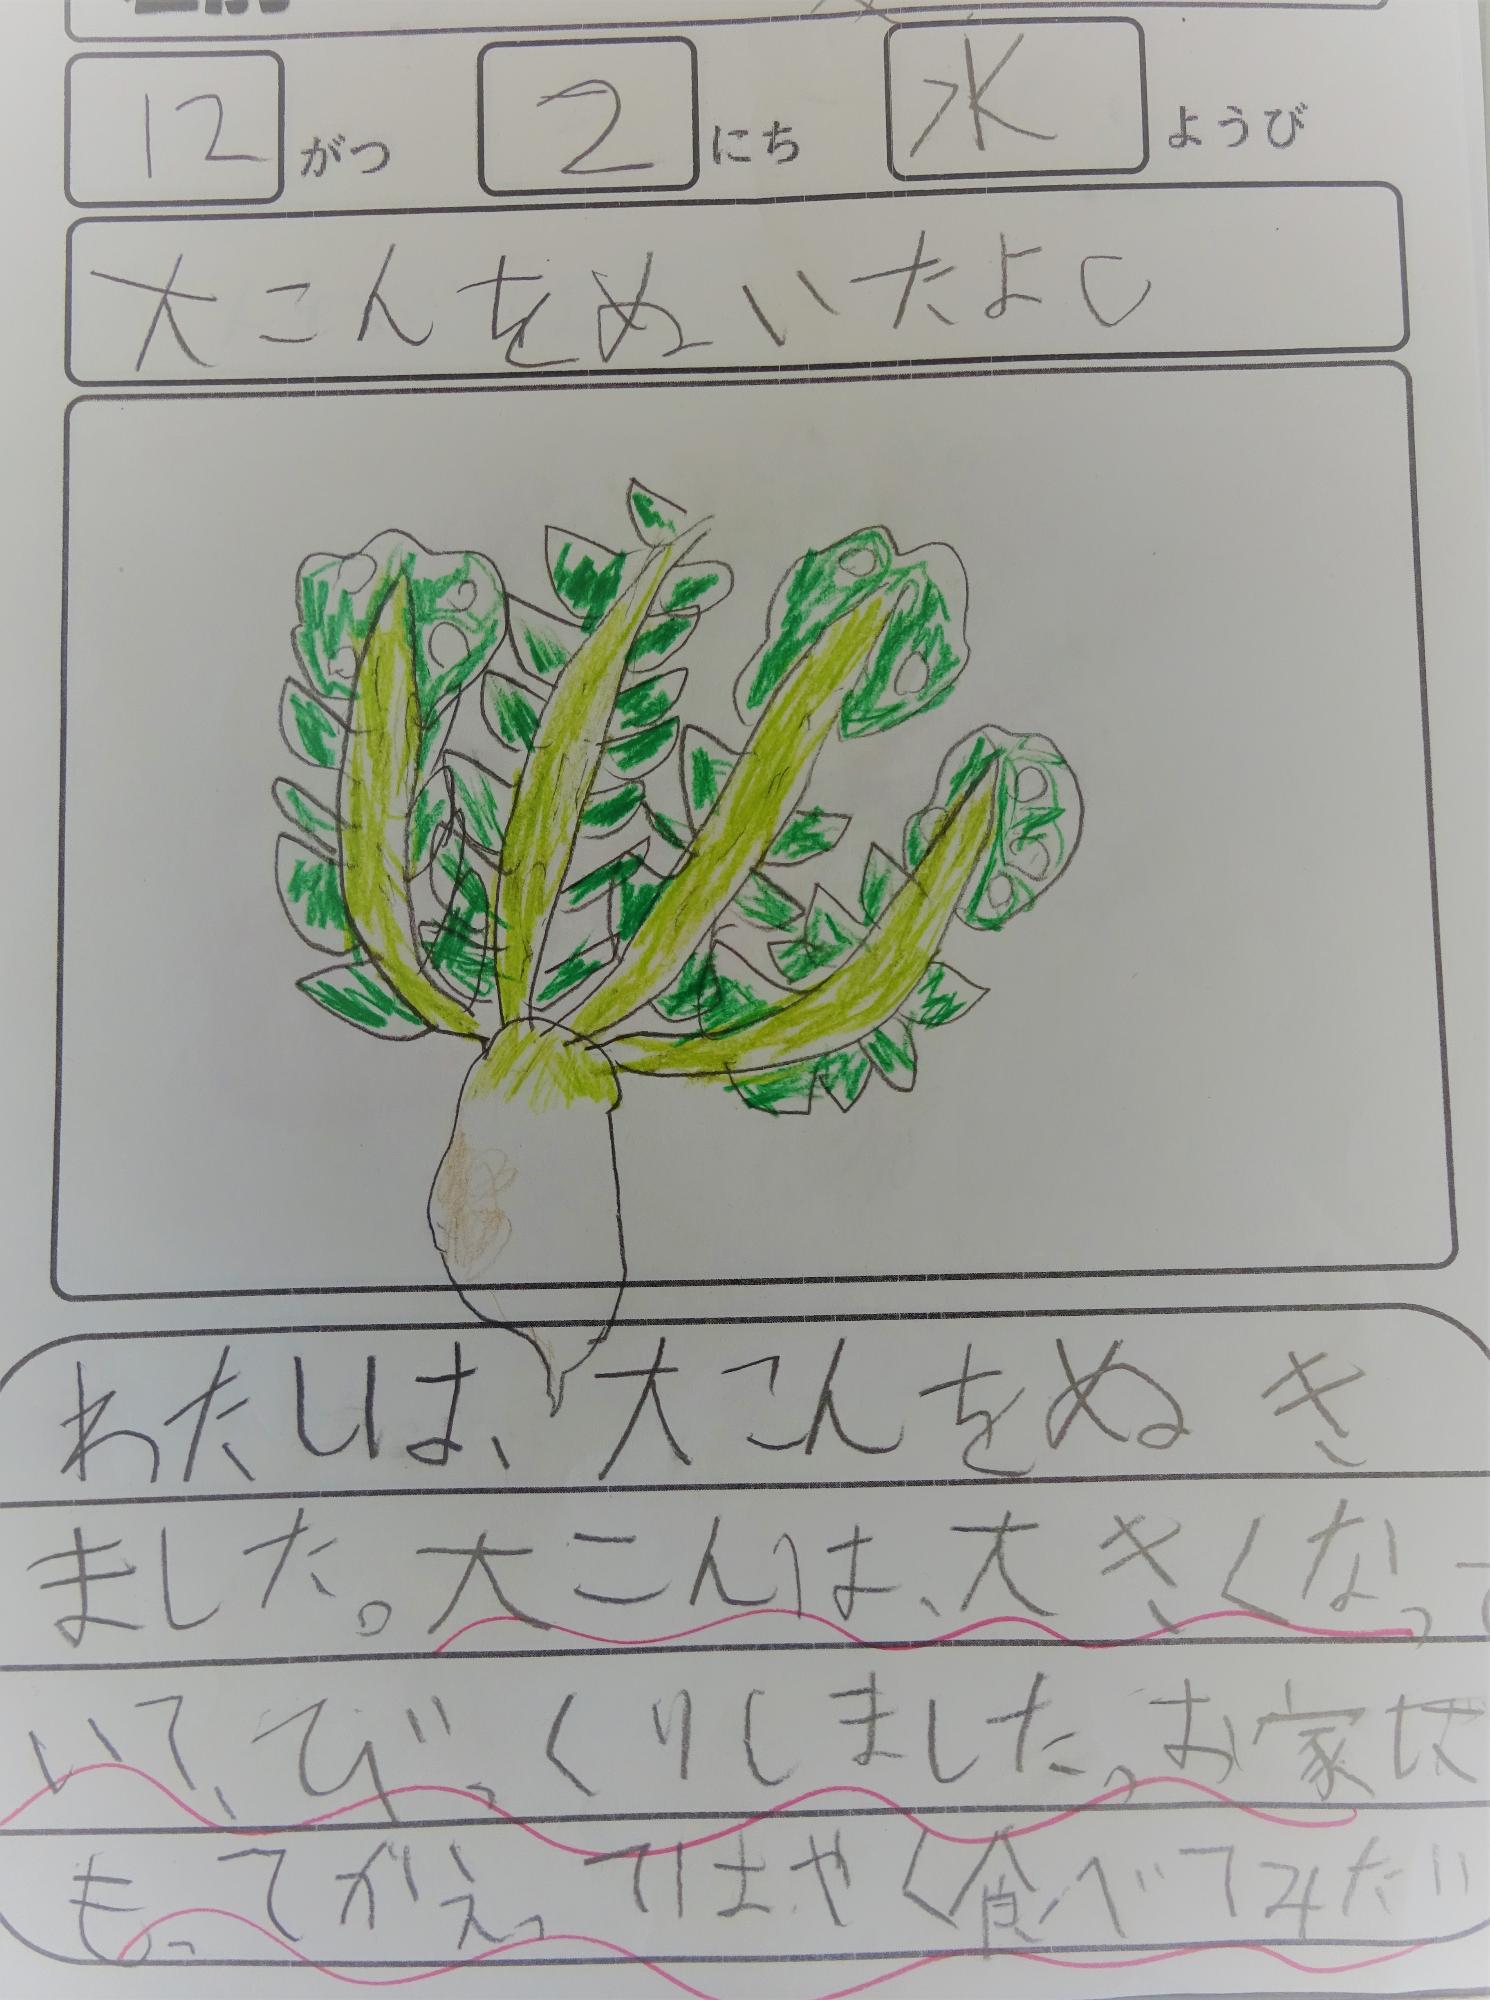 12 がつ 2 にち 水 ようび
大こんをぬいたよ
わたしは、大こんをぬき
ました。大こんは、大きくなって
いて、びっくりしました。お家に
もってかえってはやく食べてみたい